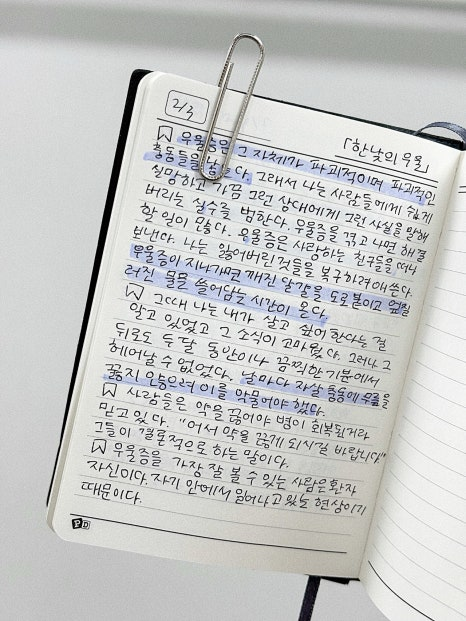 2/3
「한낮의 우울」
우울증은 그 자체가 파괴적이며 파괴적인
충동들을 낳는다. 그래서 나는 사람들에게 쉽게
실망하고 가끔 그런 상대에게 그런 사실을 말해
버리는 실수를 범한다. 우울증을 겪고 나면 해결
할 일이 많다. 우울증은 사랑하는 친구들을 떠나
보낸다. 나는 잃어버린 것들을 복구하려 애쓴다.
우울증이 지나가면 깨진 달걀을 도로 붙이고 엎질
러진 물을 쓸어담는 시간이 온다.
그때 나는 내가 살고 싶어 한다는 걸
알고 있었고 그 소식이 고마웠다. 그러나 그
뒤로도 두 달 동안이나 끔찍한 기분에서
헤어날 수 없었다. 날마다 자살 충동에 무릎을
꿇지 않으려 이를 악물어야 했다.
사람들은 약을 끊어야 병이 회복된거라
믿고 있다. "어서 약을 끊게 되시길 바랍니다"
그들이 결론적으로 하는 말이다.
우울증을 가장 잘 볼 수 있는 사람은 환자
자신이다. 자기 안에서 일어나고 있는 현상이기
때문이다.
PD